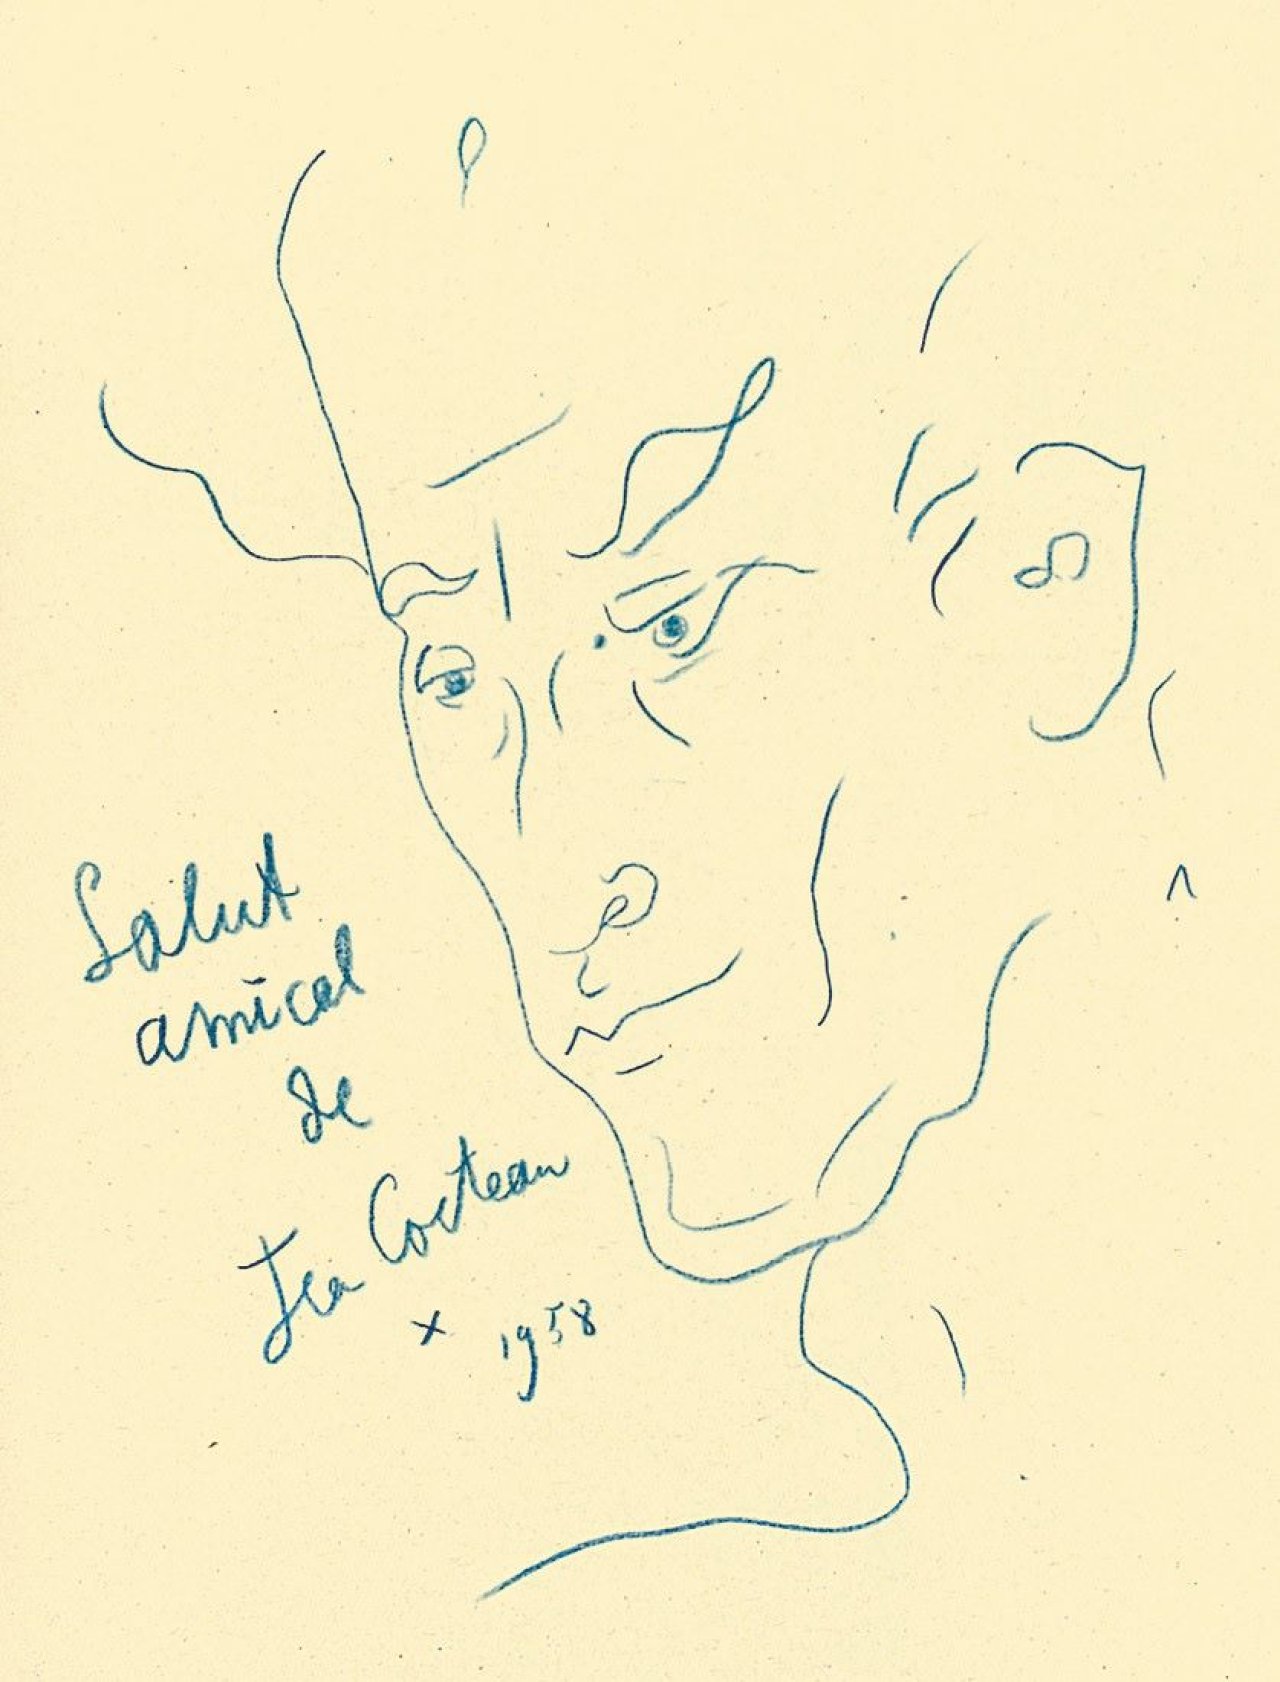 Salut
amical
de
Jean Cocteau
* 1958